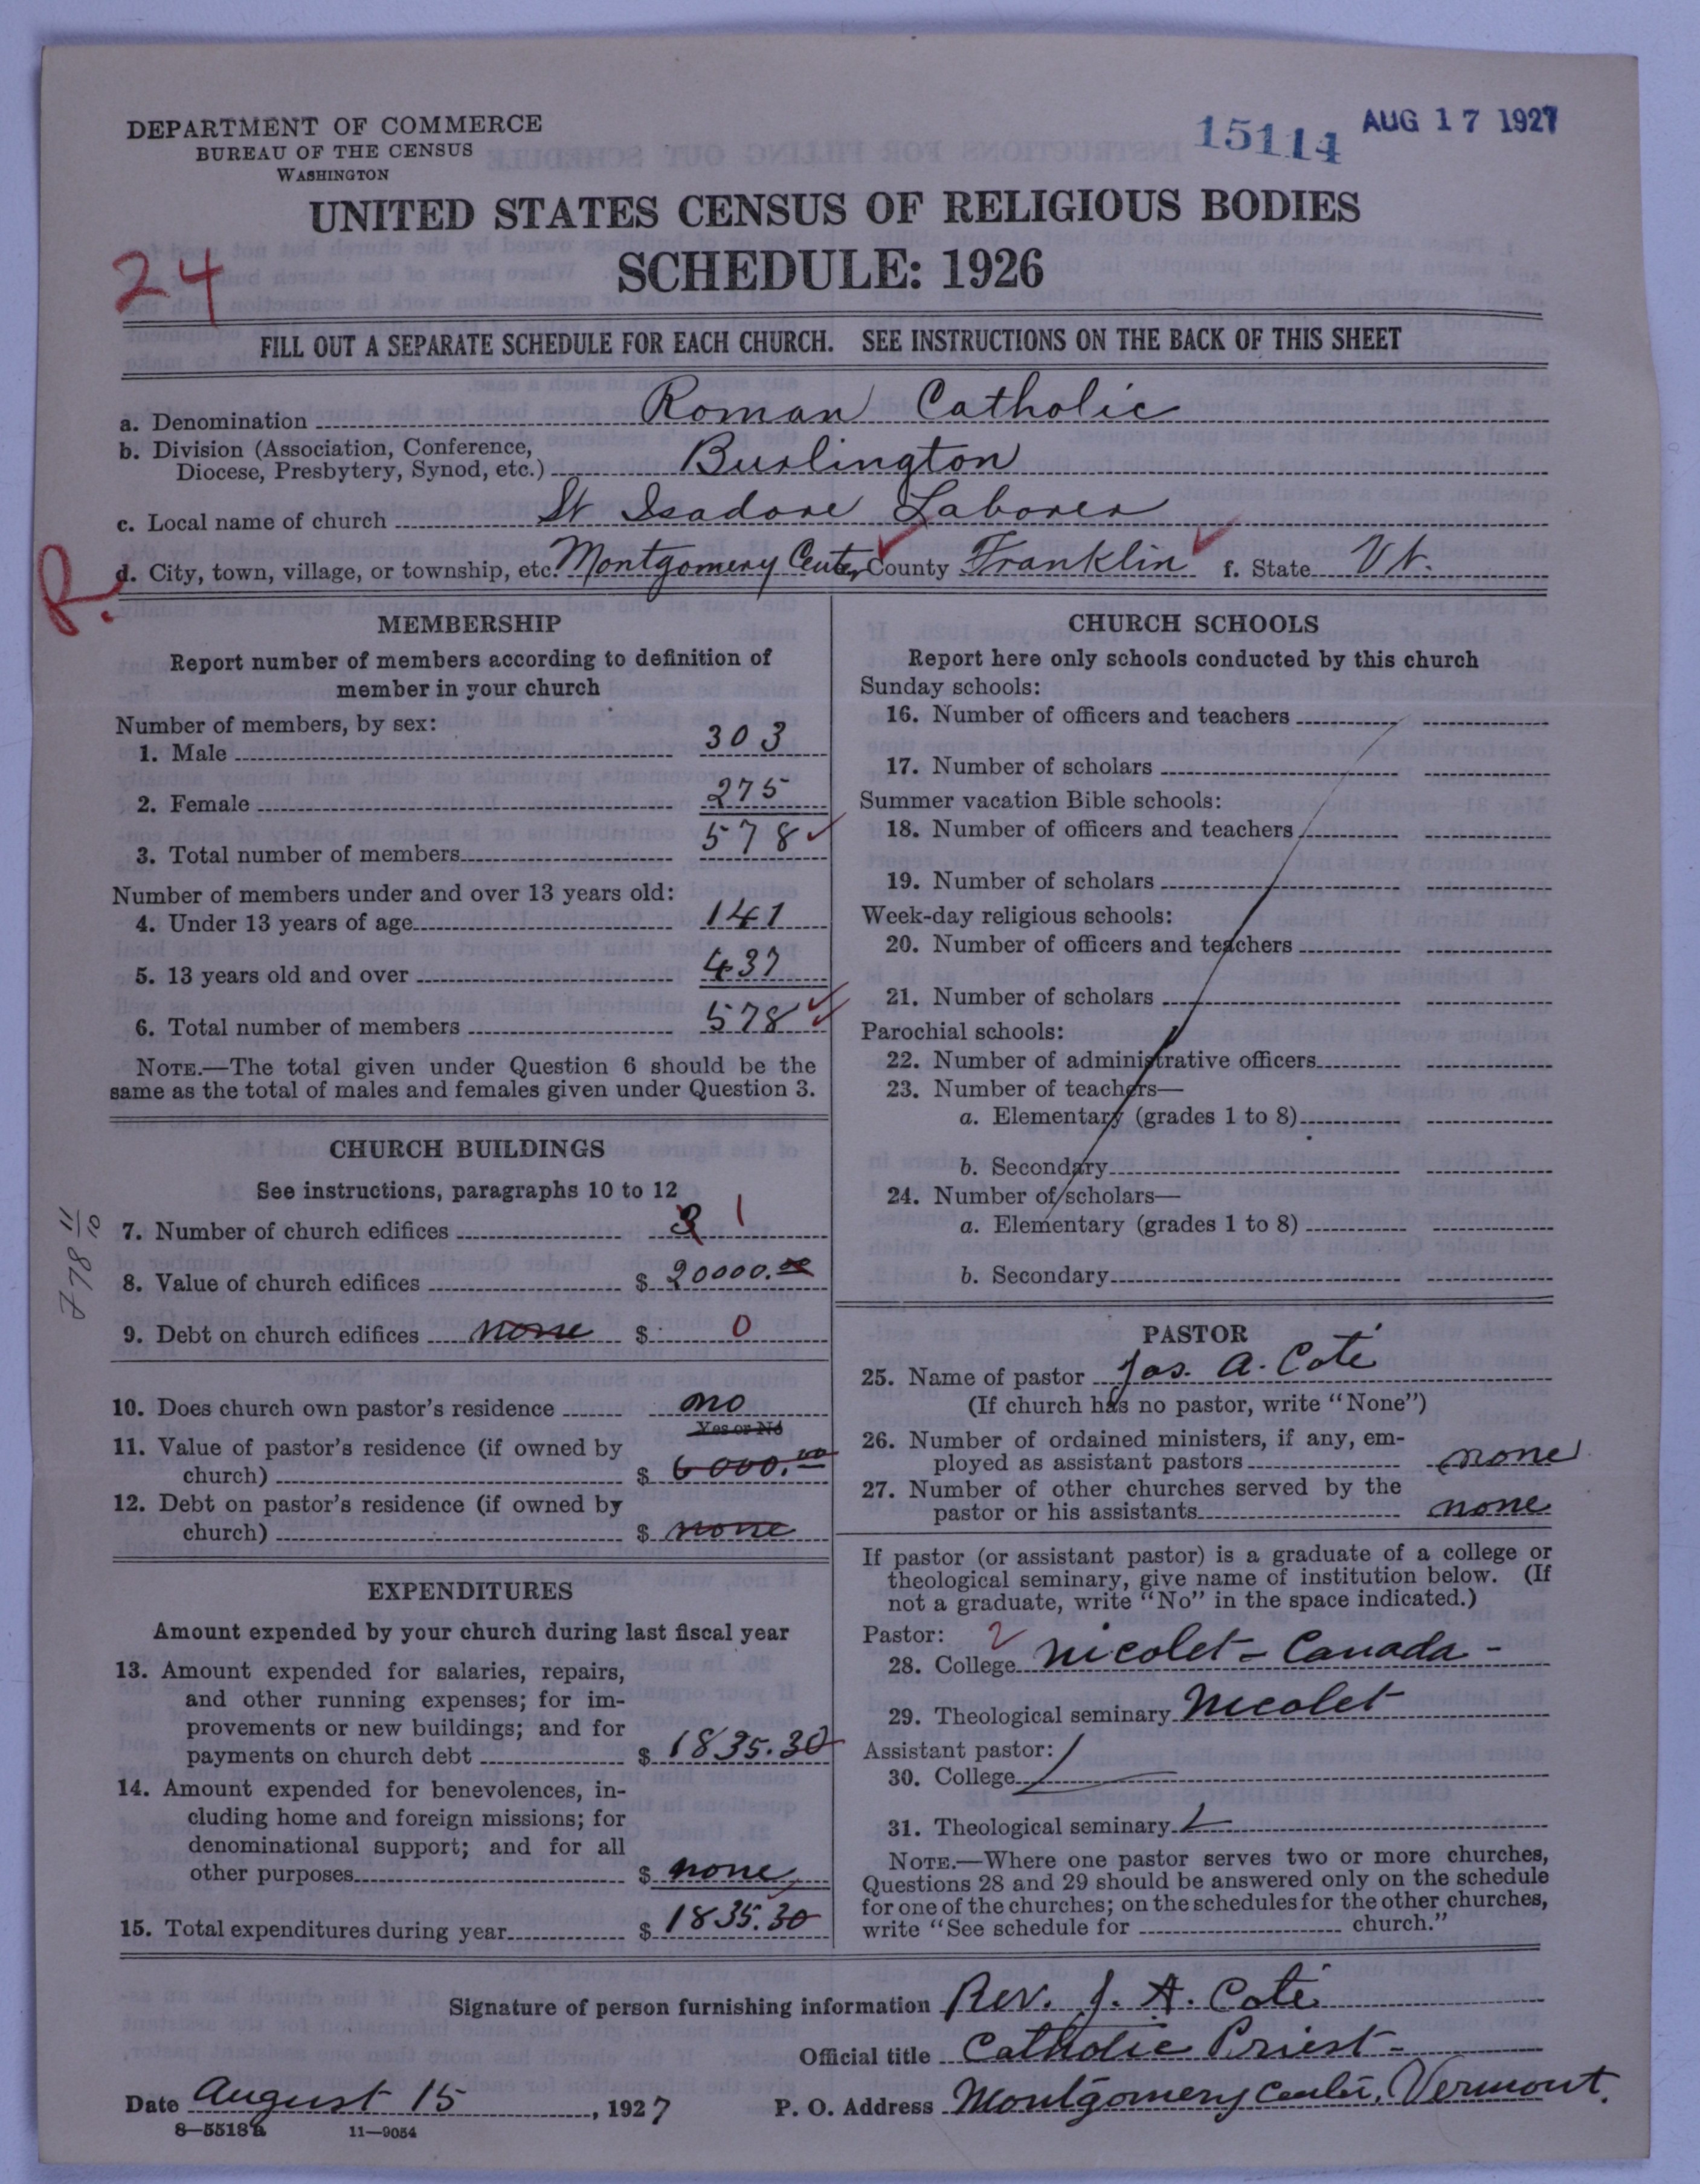 DEPARTMENT OF COMMERCE
BUREAU OF THE CENSUS
WASHINGTON
15114 AUG 17 1927
UNITED STATES CENSUS OF RELIGIOUS BODIES
SCHEDULE: 1926
24
FILL OUT A SEPARATE SCHEDULE FOR EACH CHURCH. SEE INSTRUCTIONS ON THE BACK OF THIS SHEET
a. Denomination Roman Catholic
b. Division (Association, Conference,
Diocese, Presbytery, Synod, etc.) Burlington
c. Local name of church St Isadore Laborer
R.
d. City, town, village, or township, etc. Montgomery Center County Franklin f. State Vt.
MEMBERSHIP
Report number of members according to definition of
member in your church
Number of members, by sex:
1. Male 303
2. Female 275
3. Total number of members 578
Number of members under and over 13 years old:
4. Under 13 years of age 141
5. 13 years old and over 437
6. Total number of members 578
NOTE.—The total given under Question 6 should be the
same as the total of males and females given under Question 3.
CHURCH BUILDINGS
See instructions, paragraphs 10 to 12
7. Number of church edifices 3 1
8. Value of church edifices $ 20000.00
9. Debt on church edifices none $ 0
10. Does church own pastor's residence no
Yes or No
11. Value of pastor's residence (if owned by
church) $ 6000.00
12. Debt on pastor's residence (if owned by
church) $ none
EXPENDITURES
Amount expended by your church during last fiscal year
13. Amount expended for salaries, repairs,
and other running expenses; for im-
provements or new buildings; and for
payments on church debt $ 1835.30
14. Amount expended for benevolences, in-
cluding home and foreign missions; for
denominational support; and for all
other purposes $ none
15. Total expenditures during year $ 1835.30
CHURCH SCHOOLS
Report here only schools conducted by this church
Sunday schools:
16. Number of officers and teachers
17. Number of scholars
Summer vacation Bible schools:
18. Number of officers and teachers
19. Number of scholars
Week-day religious schools:
20. Number of officers and teachers
21. Number of scholars
Parochial schools:
22. Number of administrative officers
23. Number of teachers—
a. Elementary (grades 1 to 8)
b. Secondary
24. Number of scholars—
a. Elementary (grades 1 to 8)
b. Secondary
PASTOR
25. Name of pastor Jos. A. Coté
(If church has no pastor, write "None")
26. Number of ordained ministers, if any, em-
ployed as assistant pastors none
27. Number of other churches served by the
pastor or his assistants none
If pastor (or assistant pastor) is a graduate of a college or
theological seminary, give name of institution below. (If
not a graduate, write "No" in the space indicated.)
Pastor:
28. College Nicolet - Canada -
29. Theological seminary Nicolet
Assistant pastor:
30. College
31. Theological seminary
NOTE.—Where one pastor serves two or more churches,
Questions 28 and 29 should be answered only on the schedule
for one of the churches; on the schedules for the other churches,
write "See schedule for church."
Signature of person furnishing information Rev. J. A. Coté
Official title Catholic Priest -
Date August 15, 1927 P. O. Address Montgomery Center, Vermont.
8—5518a 11—9054